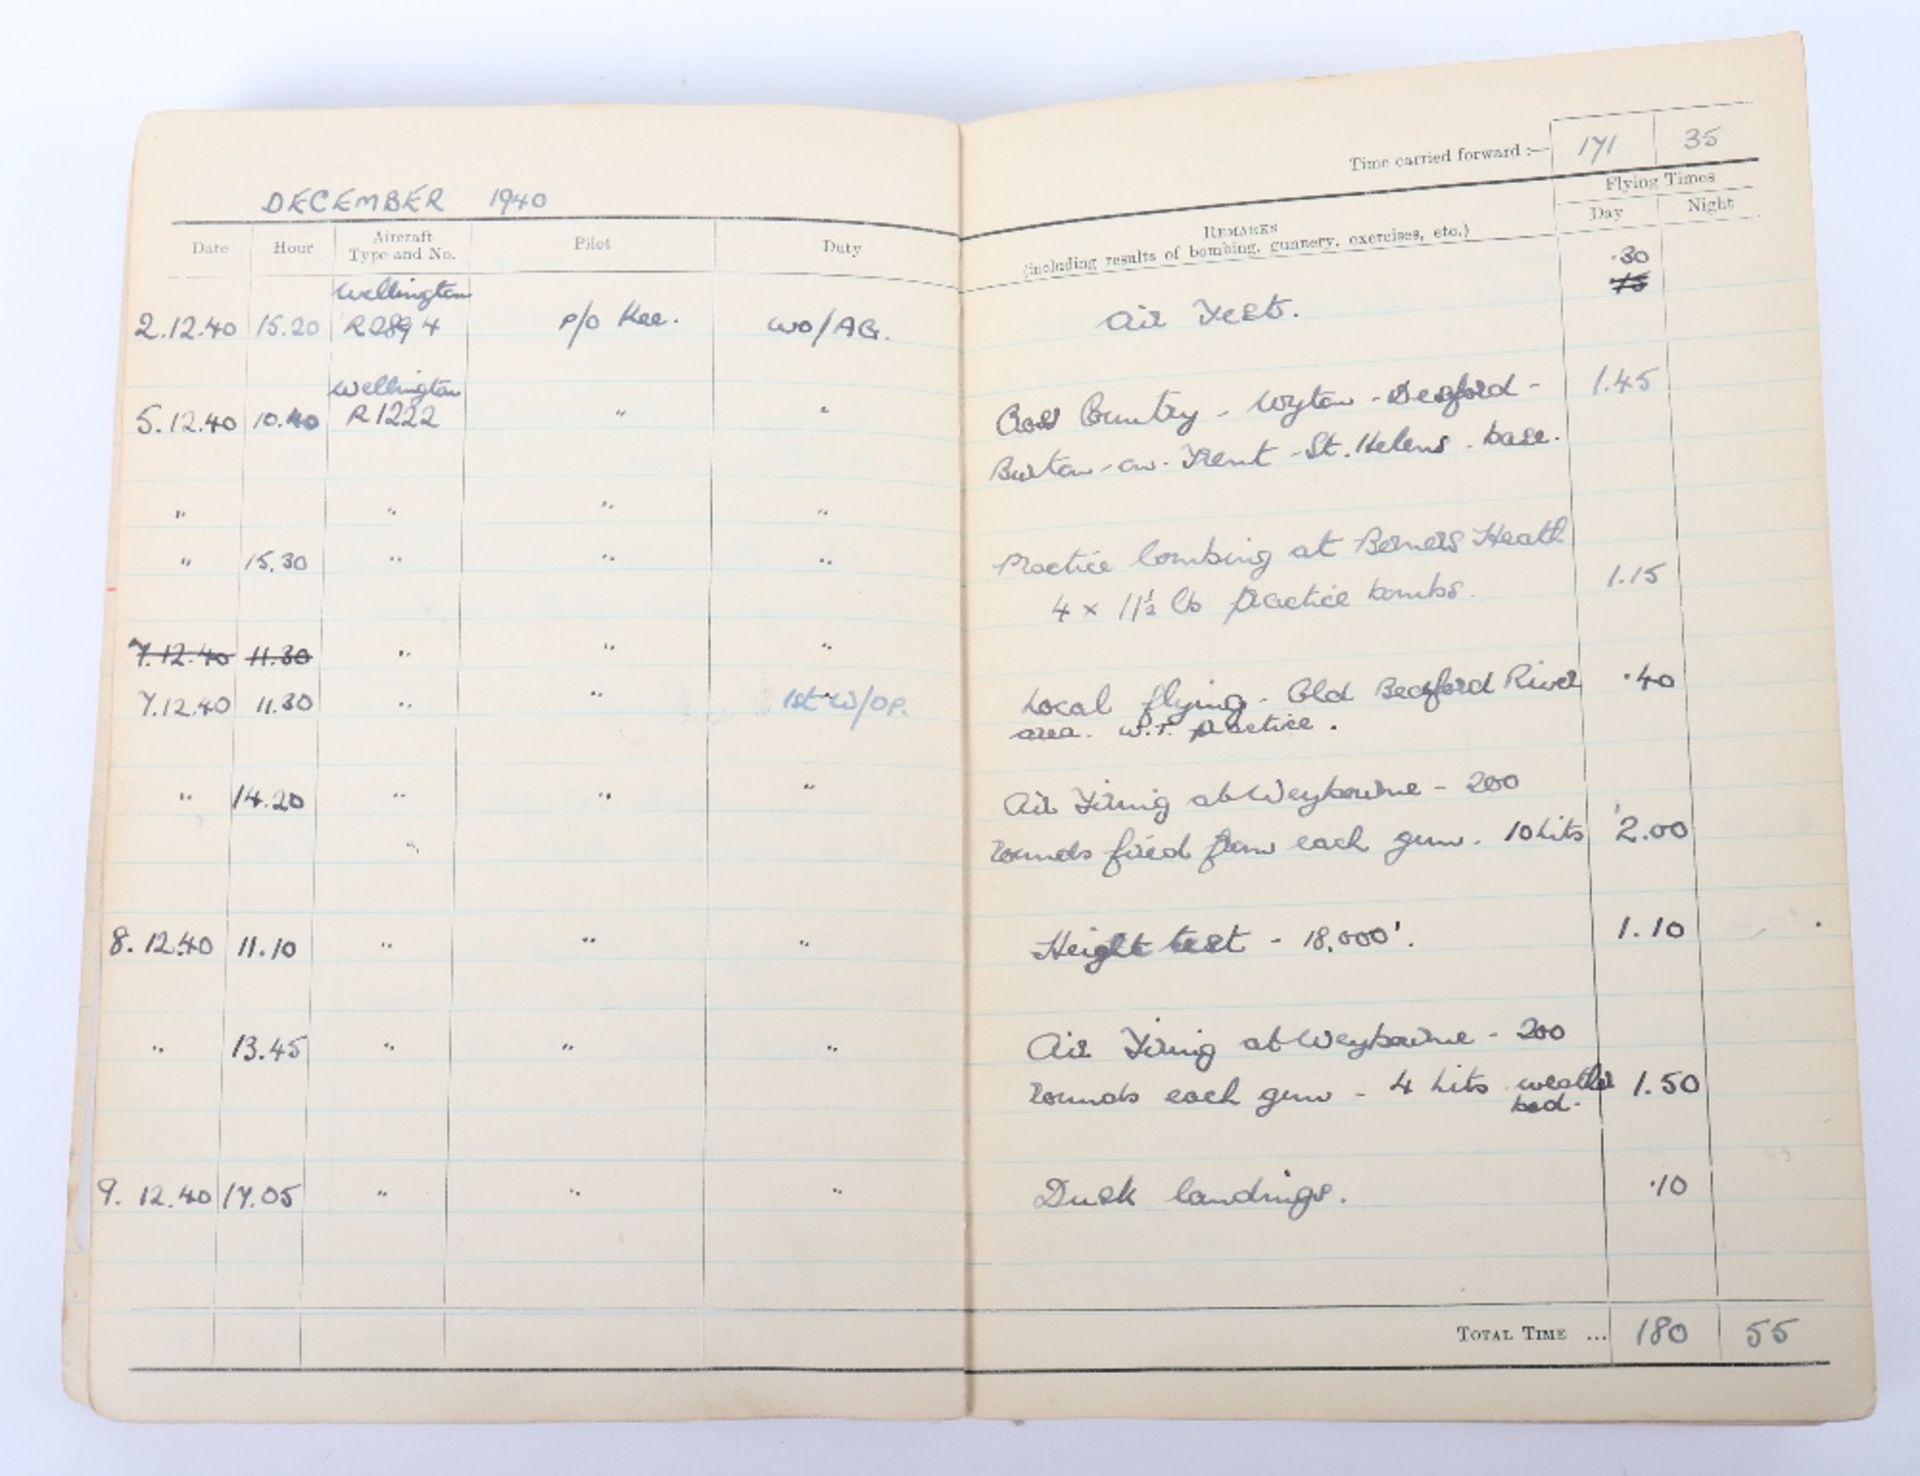 DECEMBER 1940
Date Hour Aircraft Type and No. Pilot Duty
Wellington
2.12.40 15.20 R2894 P/O Kee. WO/AG.
Wellington
5.12.40 10.40 R1222 " "
" " " "
" 15.30 " " "
7.12.40 11.30 " " "
7.12.40 11.30 " " 1st W/OP.
" 14.20 " " "
"
8.12.40 11.10 " " "
" 13.45 " " "
9.12.40 17.05 " " "
Time carried forward :— 171 35
Flying Times
REMARKS
(including results of bombing, gunnery, exercises, etc.) Day Night
.30
15
Air Test.
Cross Country - Wyton - Desford - 1.45
Burton-on-Trent - St. Helens - base.
Practice bombing at Berners Heath
4 x 11½ lb practice bombs. 1.15
Local flying - Old Bedford River .40
area. W.T. practice.
Air Firing at Weybourne - 200
rounds fired from each gun. 10 hits 2.00
Height test - 18,000'. 1.10
Air Firing at Weybourne - 200
rounds each gun - 4 hits weather 1.50
bad.
Dusk landings. .10
TOTAL TIME ... 180 55